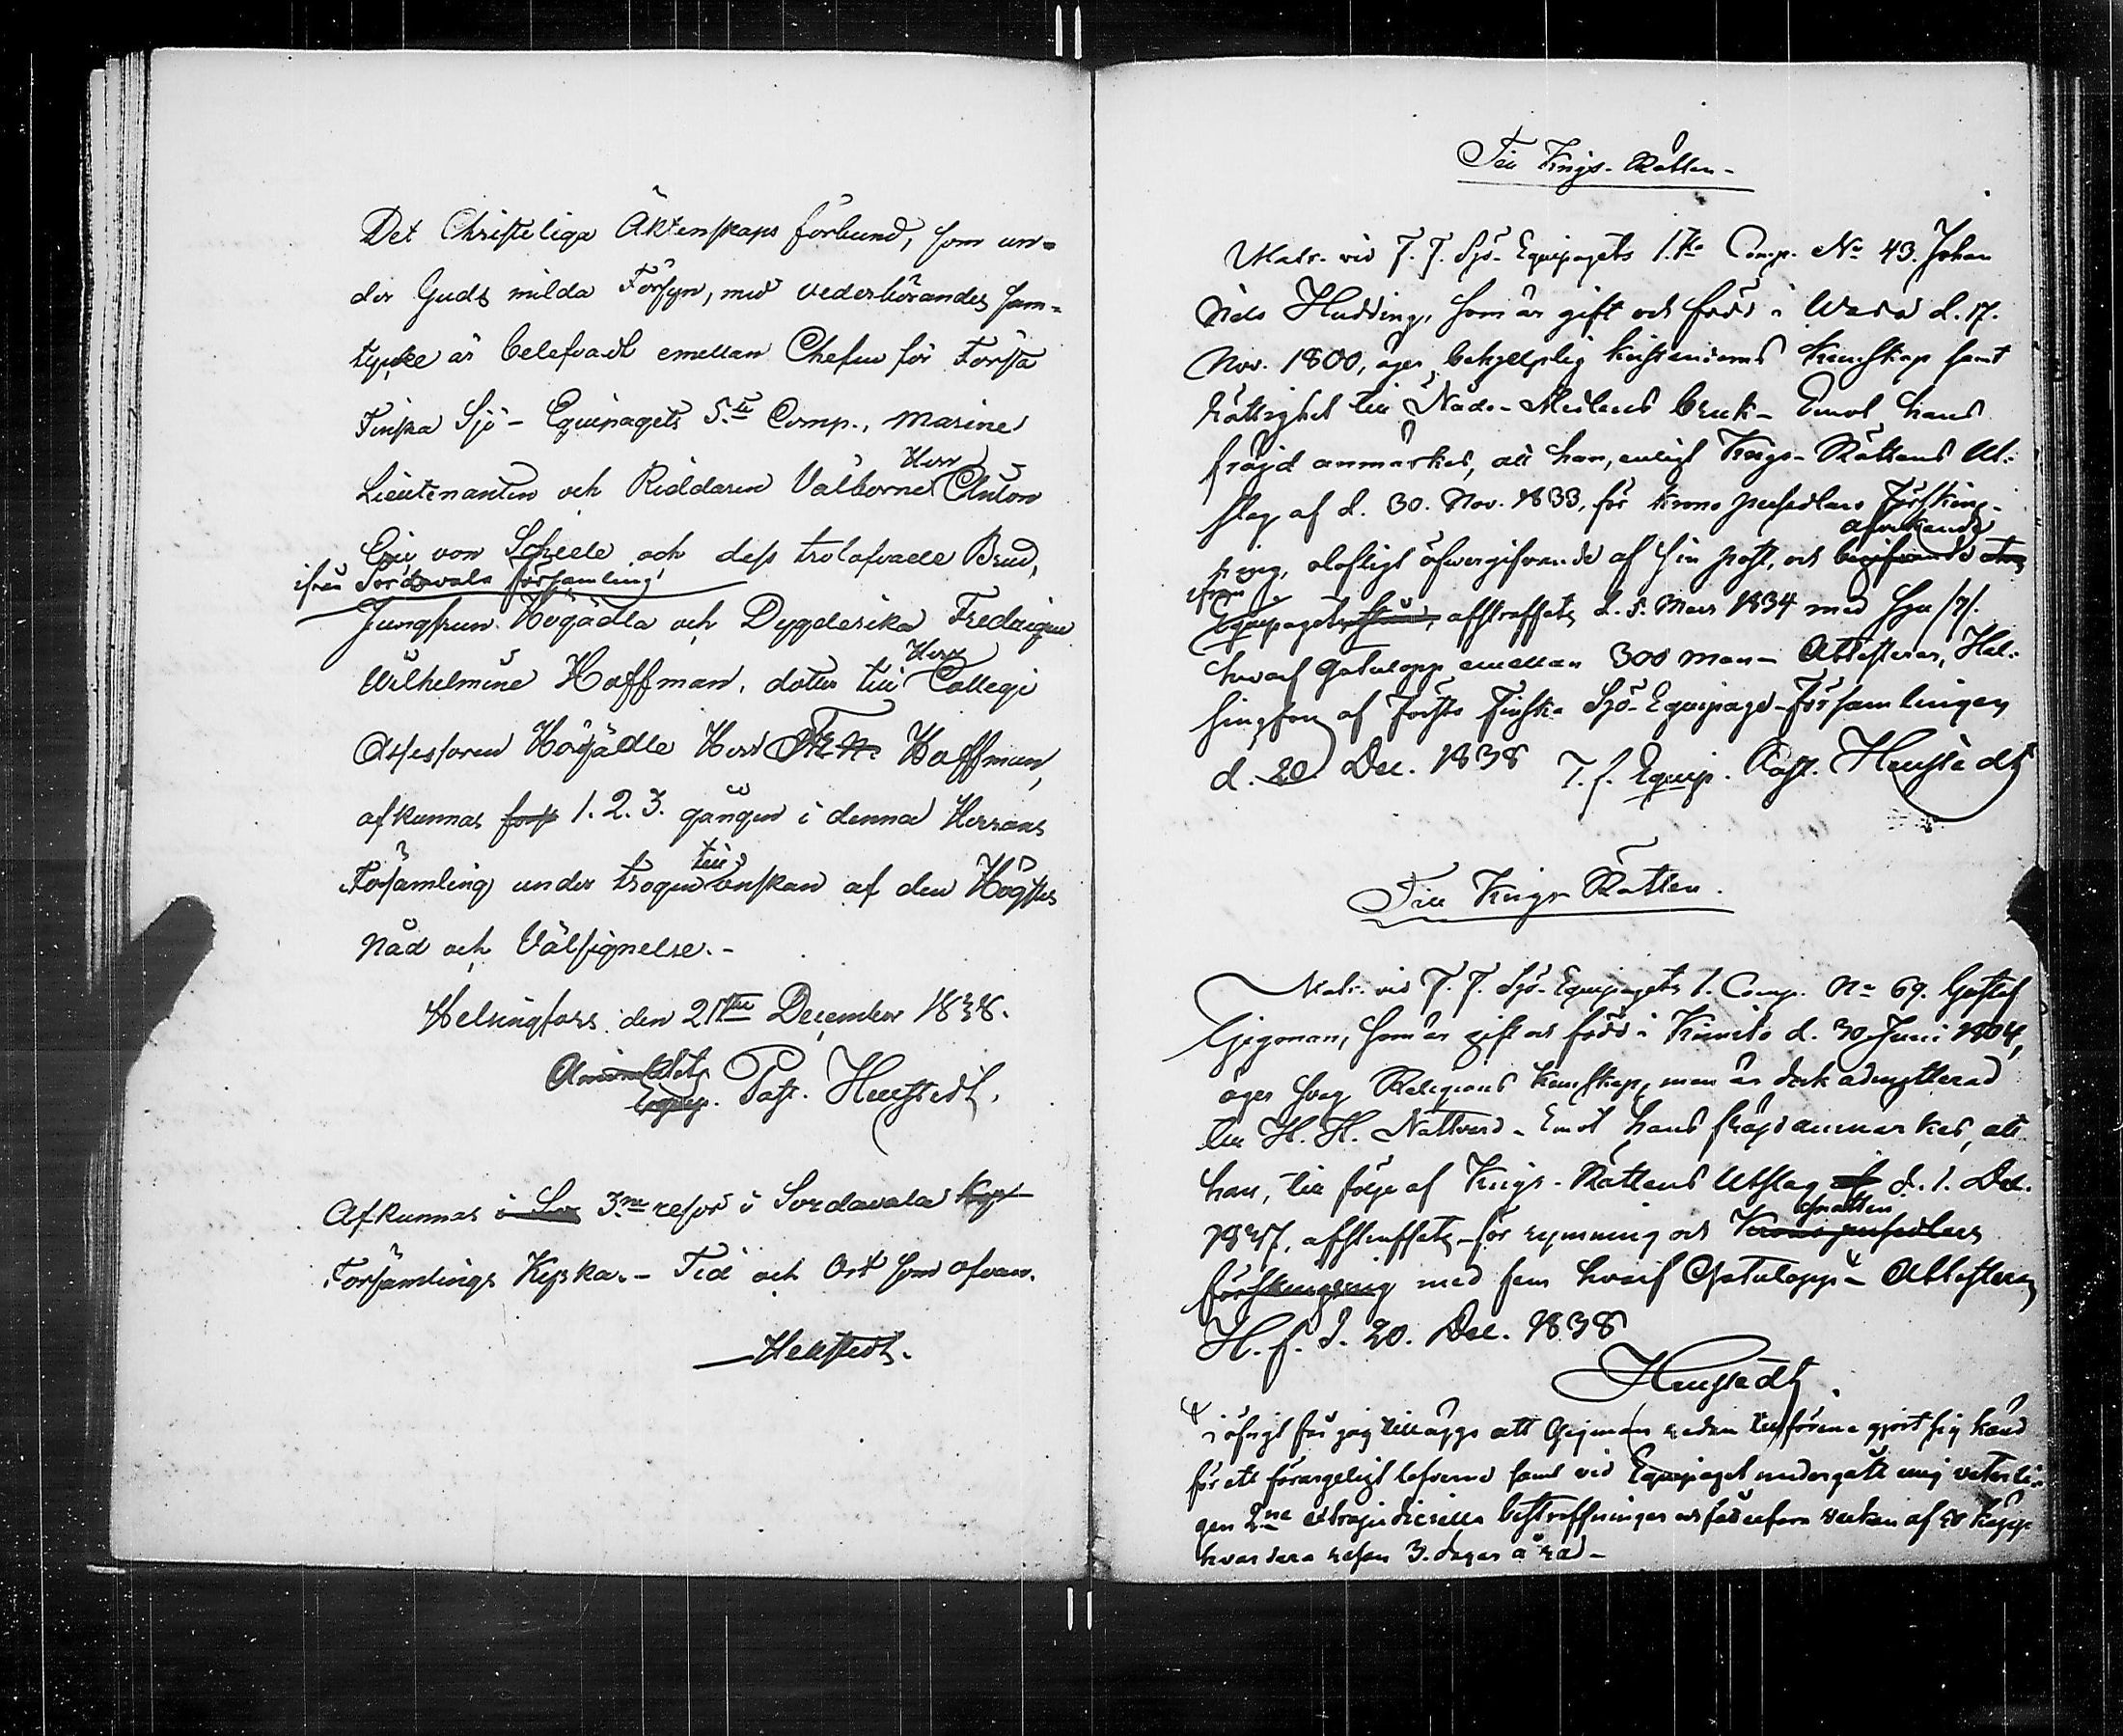 Det Christeliga Äktenskaps förbund, som un-
der Guds milda Försyn, med vederbörandes sam-
tycke är belefvadt emellan Chefen för Första
Finska Sjö-Equipagets 5.te Comp., Marine
Lieutenanten och Riddaren Välborne Herr Anton
von Schéele och dess trolofvade Brud,
ifrån Sordavala församling
Jungfrun Högädla och Dygderika Fredrique
Wilhelmine Hoffman, dotter till Herr Collegi
Assessoren Högädle Herr Hoffman,
afkunnas 1. 2. 3. gången i denna Herrans
Församling under trogen tillönskan af den Högstes
Nåd och Välsignelse.-
Helsingfors den 21sta December 1838.
Equip. Past. Hellstedt.
Afkunnas 3.ne resor i Sordavala
Församlings Kyrka.- Tid och Ort som ofvan.
Hellstedt.
Till Krigs-Rätten-
Matr. vid F. F. Sjö-Equipagets 1.sta Comp. No 43. Johan
Nils Hudding, som är gift och född i Wasa d. 17.
Nov. 1800, äger behjelplig Kristendoms kunskap samt
rättighet till Nåde-Medlens bruk- Emot hans
fräjd anmärkes, att han, enligt Krigs-Rättens Ut-
slag af d. 30. Nov. 1833, för krono persedlars Försking-
ring, olofligt öfvergifvande af sin post, och afvikande
ifrån Equipaget, afstraffats d. 5. Mars 1834 med sju /7/.
hvarf gatulopp emellan 300 man- Attesteras, Hel-
singfors af Första Finska Sjö-Equipage-Församlingen
d. 20. Dec. 1838 T. f. Equip. Past. Hellstedt
Till Krigs Rätten.
Matr. vid F. F. Sjö-Equipagets 1. Comp. No 69. Gustaf
Gigman, som är gift och född i Kimito d. 30 Juni 1804,
äger svag Religions kunskap, men är dock admitterad
till H. H. Nattvard- Emot hans fräjd anmärkes, att
han, till följe af Krigs-Rättens Utslag af d. 1. Dec.
1837, afstraffats för rymning och snatteri
med fem hvarf Gatulopp- Attesteras
H. f. d. 20. Dec. 1838
Hellstedt
i öfrigt får jag tillägga att Gigman redan tillförene gjort sig känd
för ett förargeligt lefverne samt vid Equipaget undergått mig veterli-
gen 2ne extrajudiciella bestraffningar
hvardera resan 3. dagar å rad-